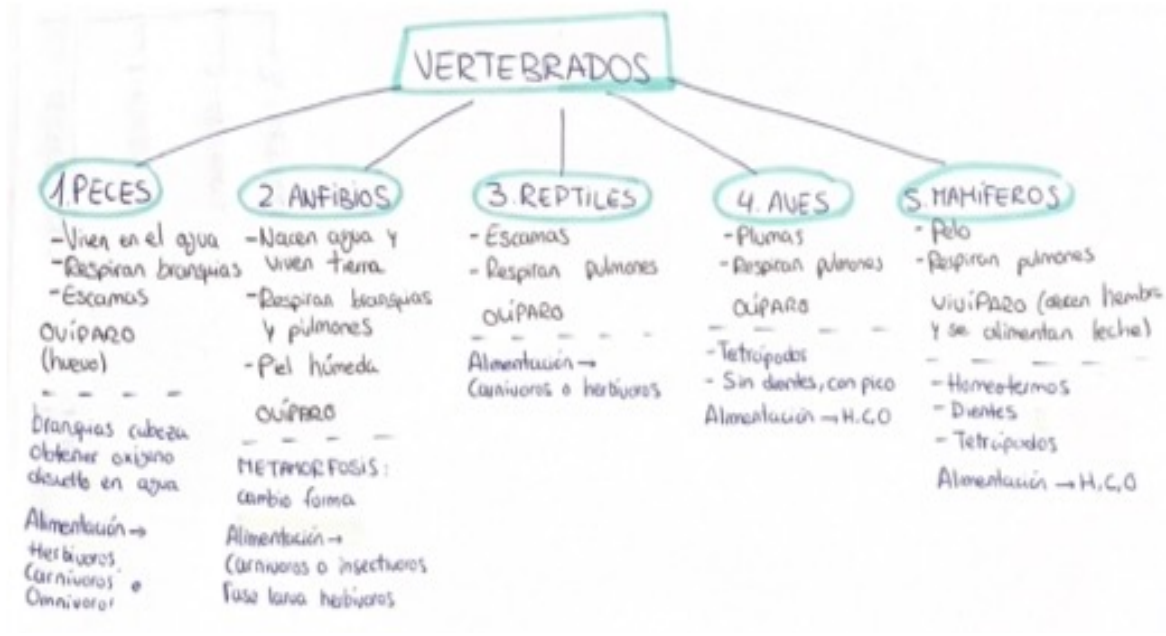 VERTEBRADOS
1. PECES
-Viven en el agua
-Respiran branquias
-Escamas
OVÍPARO
(huevo)
branquias cabeza
obtener oxígeno
disuelto en agua
Alimentación →
Herbívoros
Carnívoros o
Omnívoros
2. ANFIBIOS
-Nacen agua y
viven tierra
-Respiran branquias
y pulmones
-Piel húmeda
OVÍPARO
METAMORFOSIS:
cambio forma
Alimentación →
Carnívoros o insectívoros
Fase larva herbívoros
3. REPTILES
- Escamas
- Respiran pulmones
OVÍPARO
Alimentación →
Carnívoros o herbívoros
4. AVES
- Plumas
- Respiran pulmones
OVÍPARO
- Tetrápodos
- Sin dientes, con pico
Alimentación → H.C.O
5. MAMÍFEROS
- Pelo
- Respiran pulmones
VIVÍPARO (crecen hembra
y se alimentan leche)
- Homeotermos
- Dientes
- Tetrápodos
Alimentación → H.C.O